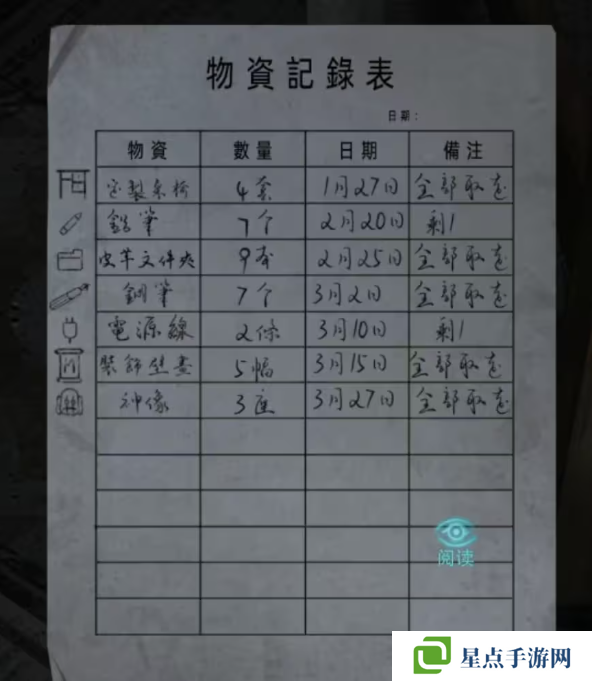 物資記錄表
日期：
物資 數量 日期 備注
定製桌椅 4套 1月27日 全部取走
鉛筆 7个 2月20日 剩1
皮革文件夾 9本 2月25日 全部取走
鋼筆 7个 3月2日 全部取走
電源線 2條 3月10日 剩1
裝飾壁畫 5幅 3月15日 全部取走
神像 3座 3月27日 全部取走
阅读
星点手游网